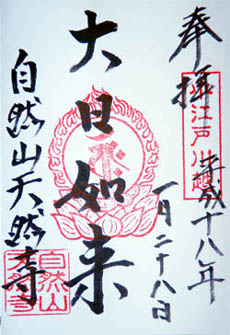 奉拝
小江戸川越
平成十八年
一月二十八日
大日如来
自然山天然寺
自然山
天然寺